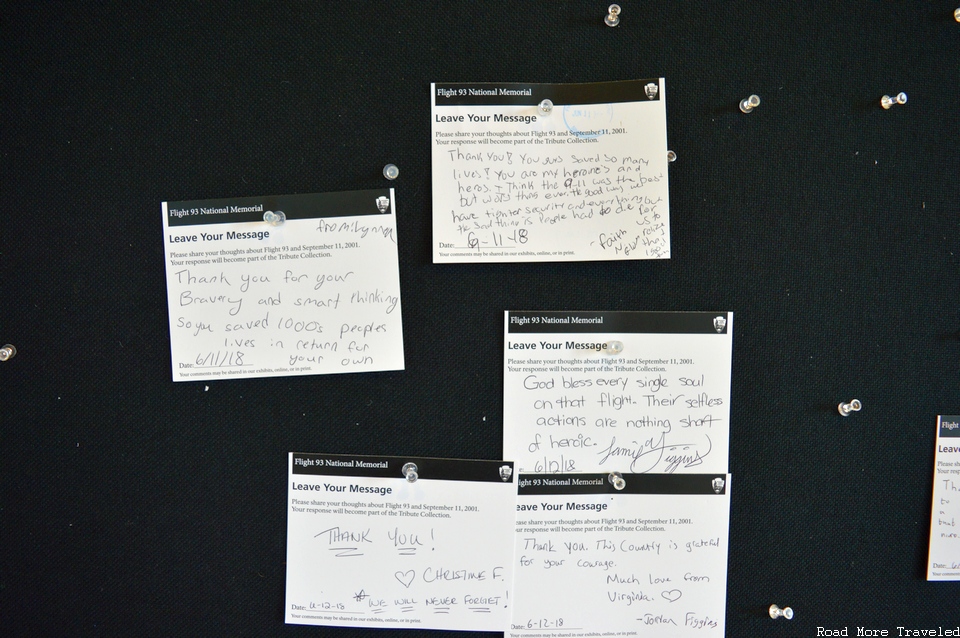 Flight 93 National Memorial
Leave Your Message
Please share your thoughts about Flight 93 and September 11, 2001.
Your response will become part of the Tribute Collection.
Thank you! You guys saved so many
lives! You are my heroine's and
heros. I Think the 9-11 was the best
but worst thing ever. the good way we
have tighter security and everything but
the sad thing is people had to die for
us to
realize
this
Faith
Date: 6-11-18
Your comments may be shared in our exhibits, online, or in print.
Flight 93 National Memorial
Leave Your Message
from: Lynna
Please share your thoughts about Flight 93 and September 11, 2001.
Your response will become part of the Tribute Collection.
Thank you for your
Bravery and smart thinking
So you saved 1000's peoples
lives in return for
your own
Date: 6/11/18
Your comments may be shared in our exhibits, online, or in print.
Flight 93 National Memorial
Leave Your Message
Please share your thoughts about Flight 93 and September 11, 2001.
Your response will become part of the Tribute Collection.
God bless every single soul
on that flight. Their selfless
actions are nothing short
of heroic.
Figgins
6/12/18
Flight 93 National Memorial
Leave Your Message
Please share your thoughts about Flight 93 and September 11, 2001.
Your response will become part of the Tribute Collection.
THANK YOU!
♡ CHRISTINE F.
* WE WILL NEVER FORGET!
Date: 6-12-18
Your comments may be shared in our exhibits, online, or in print.
93 National Memorial
Leave Your Message
Please share your thoughts about Flight 93 and September 11, 2001.
Your response will become part of the Tribute Collection.
Thank you. This Country is grateful
for your courage.
Much love from
Virginia. ♡
- Jordan Figgins
Date: 6-12-18
Your comments may be shared in our exhibits, online, or in print.
Flight
Leave
Please
Your
to
a
that
Date:
Your
Road More Traveled